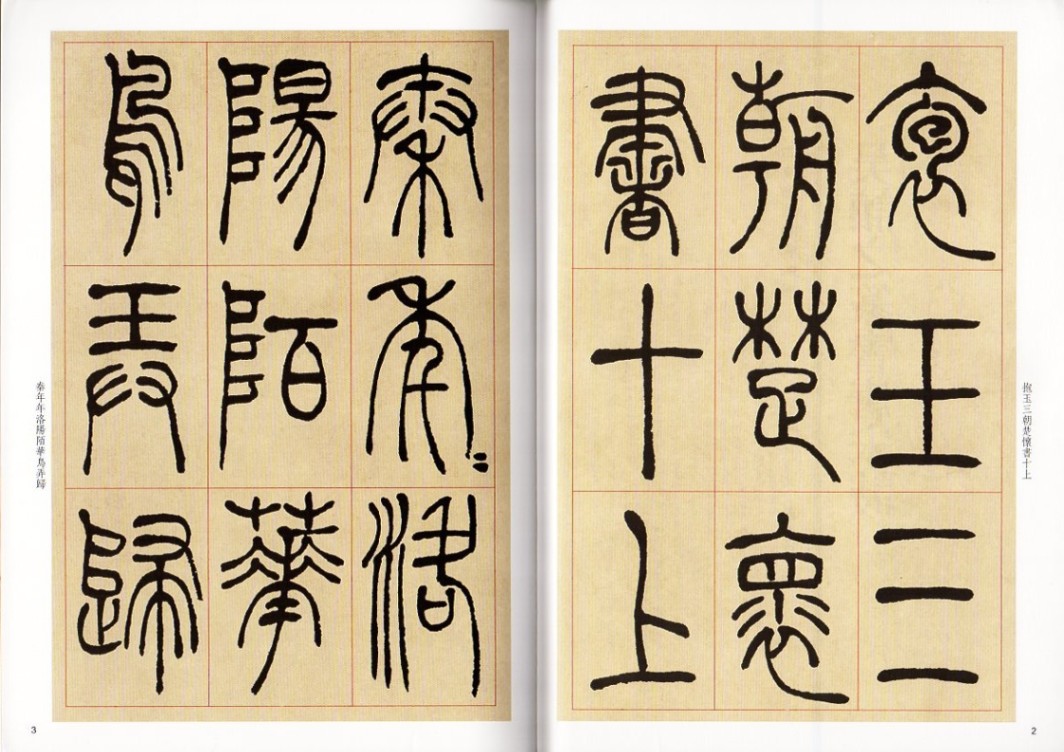 袌玉三
朝楚褱
書十上
抱玉三朝楚懷書十上
2
秦年〻洛
陽陌華
鳥弄歸
秦年年洛陽陌華鳥弄歸
3